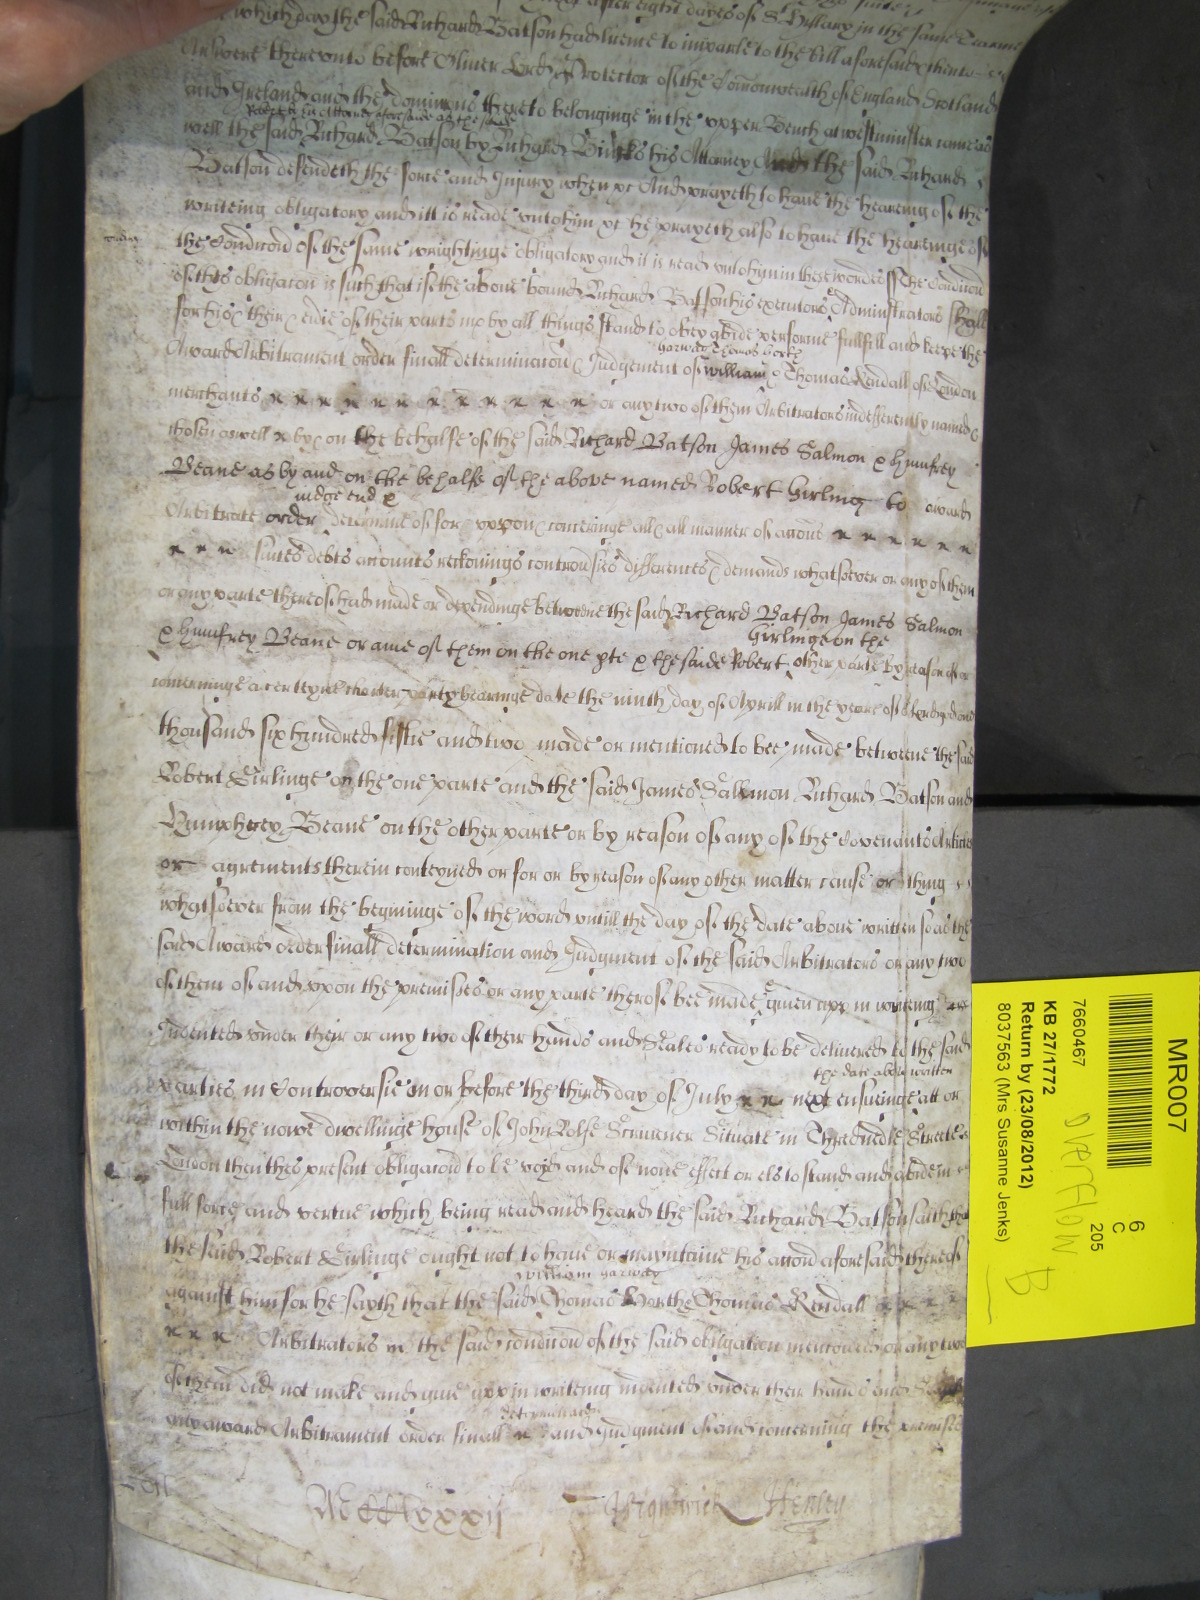 which day the said Richard Batson had licence to imparle to the bill aforesaid & then to
Answere thereunto before Oliver Lord Protector of the Comonwealth of England Scotland
and Ireland and the dominions thereto belonginge in the upper Bench at westminster came as
well the said Richard Batson by Richard his Attorney And the said Richard
Batson defendeth the force and Injury when &c And prayeth to have the heareing of the
writeing obligatory and itt is reade unto him &c he prayeth also to have the hearinge of
the Condicond of the same wrightinge obligatory and it is read unto him in these wordes ss The Condicond
of this obligacon is such that if the above bound Richard Batson his executors & Administrators shall
for his & their & evie of their parts in & by all things stand to obey abide performe fullfill and keepe the
garway Thomas Worth
Award Arbitrament order finall determinacon & Judgement of william & Thomas Kendall of London
merchants x x x x x x x x x x or any two of them Arbitrators indefferently named &
chosen aswell x by & on the behalfe of the said Richard Batson James Salmon & humfrey
Beane as by and on the behalfe of the above named Robert Girling to award
judge end &
Arbitrate order determine of for & uppon & concerninge all & all manner of accons x x x x x x
x x x suites debts accounts reckonings controvsies differences & demands whatsoever or any of them
or any parte thereof had made or dependinge betweene the said Richard Batson James Salmon
Girlinge on the
& humfrey Beane or anie of them on the one pte & the saide Robert other parte by reason of or
concerninge a certeyne charter party bearinge date the ninth day of Aprill in the yeare of o Lord god one
thousand six hundred fiftie and two made or mentioned to bee made betweene the said
Robert Girlinge on the one parte and the said James Salmon Richard Batson and
Humphrey Beane on the other parte or by reason of any of the Covenants Articles
or agrements therein conteyned or for or by reason of any other matter cause or thing
whatsoever from the begininge of the world untill the day of the date above written so as the
said Award order finall determination and Judgment of the said Arbitrators or any two
of them of and uppon the premisses or any parte therof bee made & given upp in writeing
Indented under their or any two of their hands and Seales ready to be delivered to the said
the date above written
parties in Controversie in or before the third day of July x x next ensueinge att or
within the nowe dwellinge house of John Rolfe Scrivener Situate in Thredneedle Streete
London then this present obligacond to be voyd and of none effect or els to stand and abide in
full force and vertue which being read and heard the said Richard Batson saith that
the said Robert Girlinge ought not to have or mayntaine his accond aforesaid thereof
william garway
against him for he sayth that the said Thomas Worth Thomas Kendall x x x x
x x x Arbitrators in the said condicond of the said obligation mencioned or any two
of them did not make and give upp in writeing indented under their hands and Seales
determinacon
any award Arbitrament order finall x and Judgment of and concerning the premisses
Henley
MR007
6
C
205
7660467
overflow
KB 27/1772
Return by (23/08/2012)
8037563 (Mrs Susanne Jenks)
B